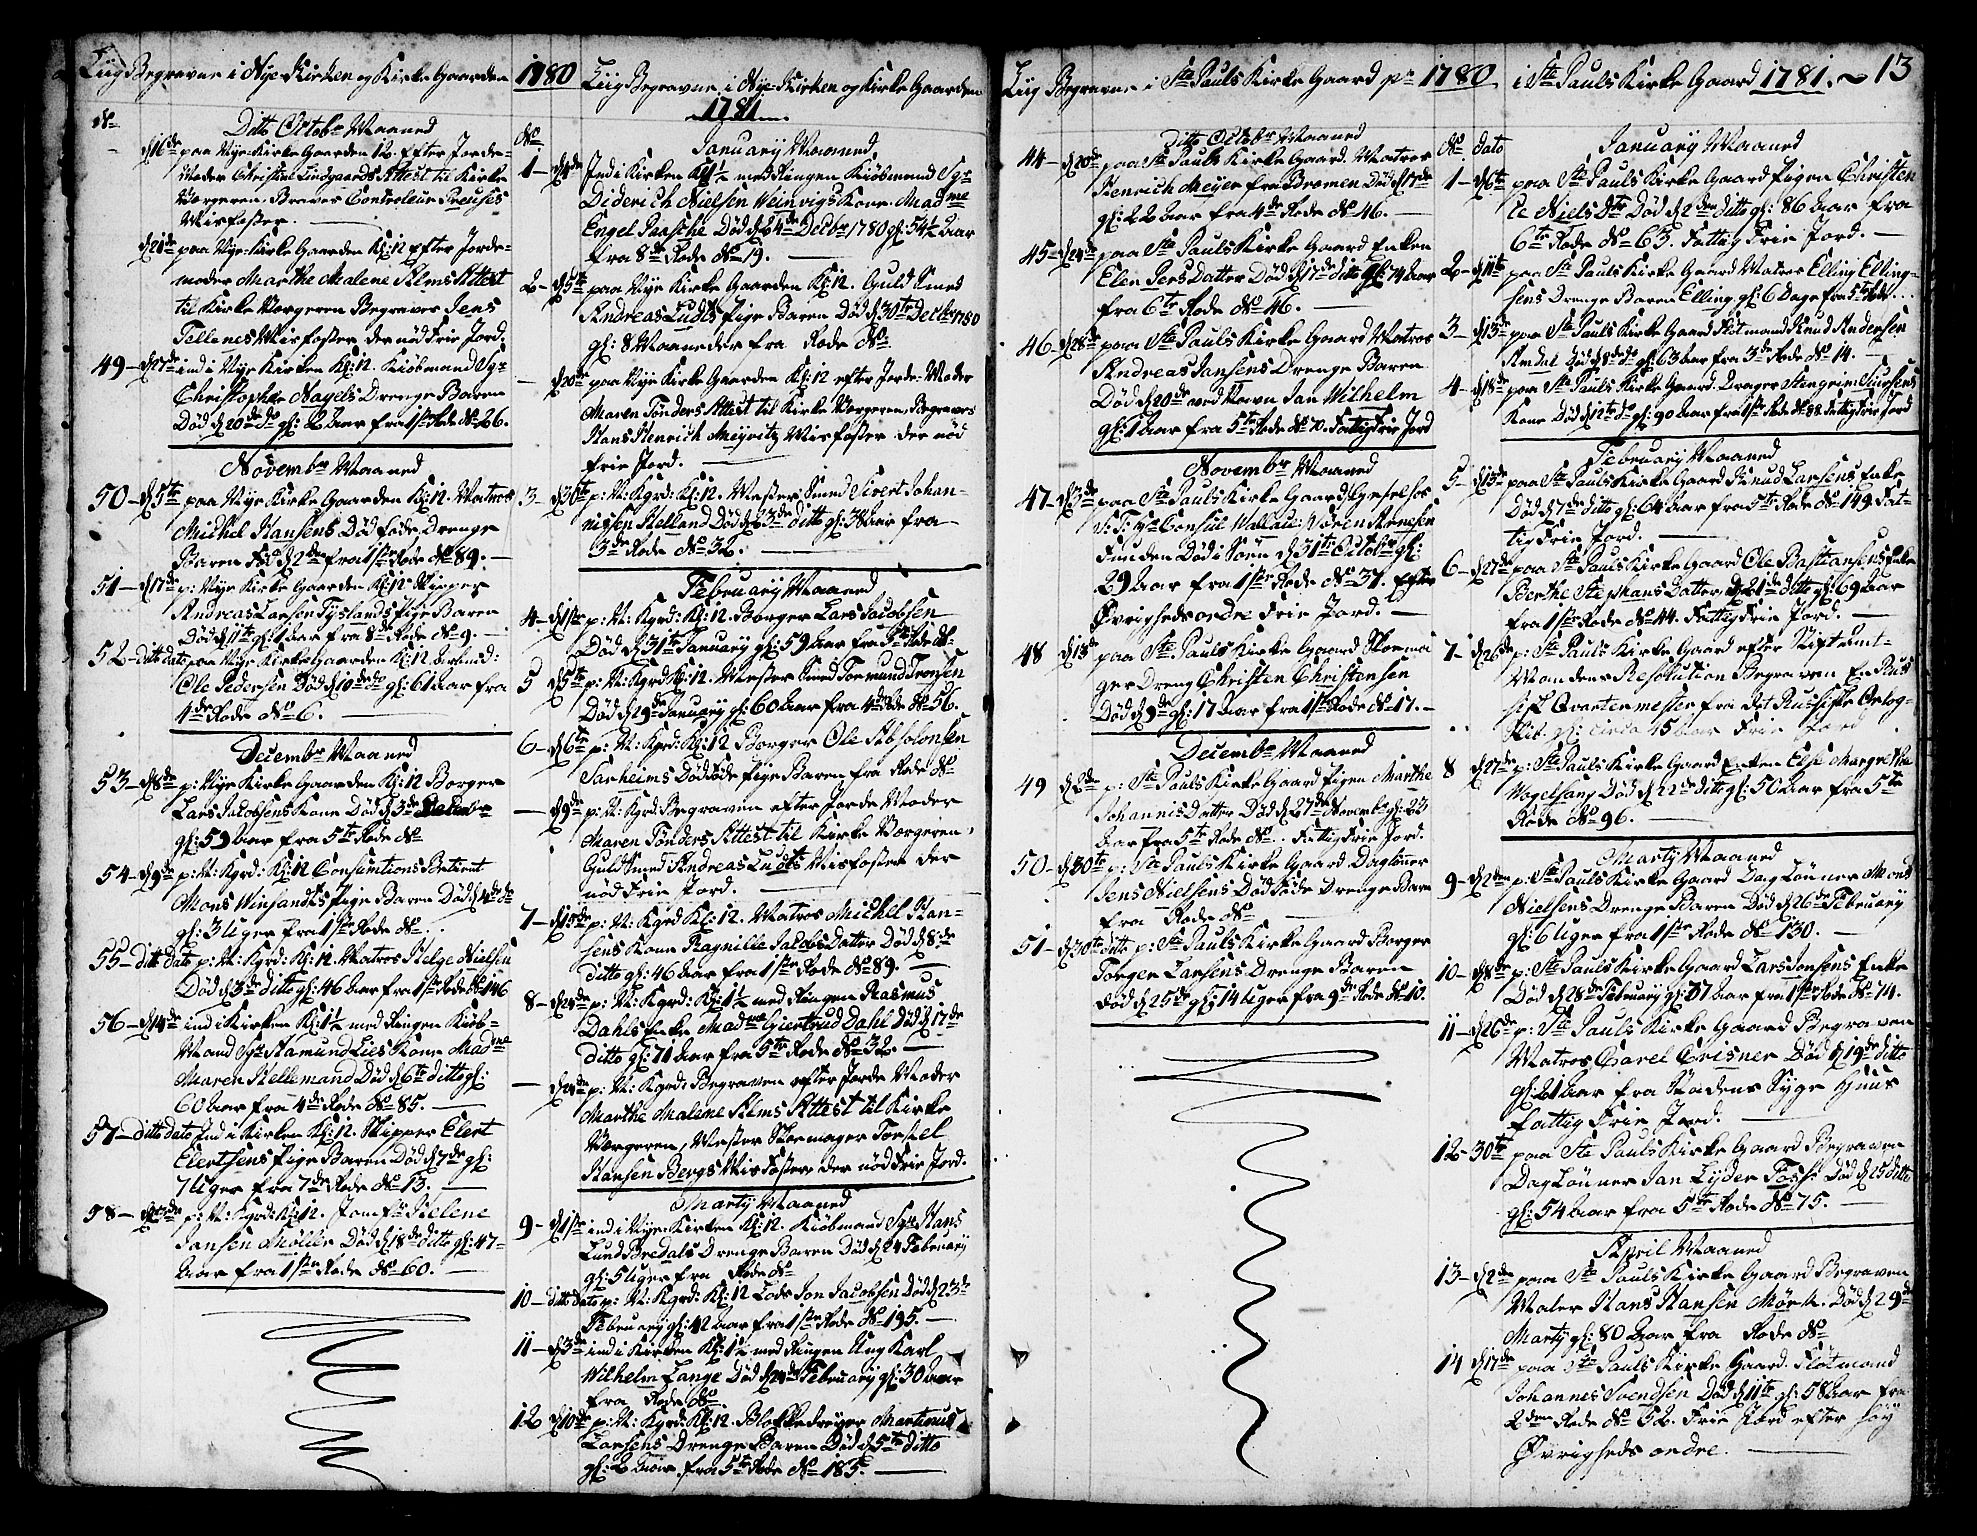 Liig Begravne i Nye-Kirken og Kirke Gaarden 1780
No
Ditto Octobr Maaned
d 16de paa Nye-Kirke Gaarden 12. Efter Jorde-
Moder Christine Lindgaards Attest til Kirke
Værgeren Begraves Controleur Preuses
Misfoster.
d 21de paa Nye-Kirke Gaarden Kl: 12 efter Jorde-
moder Marthe Malene Alms Attest
til Kirke Værgeren Begraves Jens
Tellenes Misfoster der nød Frie Jord.
49 – d 27de ind i Nye Kirken Kl: 12. Kiøbmand Sgr
Christopher Nagels Drenge Baren
Død d 20de do gl: 2 Aar fra 1ste Rode No 26.
Novembr Maaned
50 – d 5te paa Nye Kirke Gaarden Kl: 12. Matros
Michel Hansens Død fødde Drenge
Baren Fød d 2den fra 1ste Rode No 89. –
51 – d 17de p: Nye Kirke Gaarden Kl: 12
Andreas Larsen Tyslands Pige Baren
Død d 11te gl: 1 Aar fra 8de Rode No 9. –
52 – ditto dato paa Nye Kirke Gaarden Kl: 12
Ole Pedersen Død d 10de do gl: 61 Aar fra
4de Rode No 6. –
Decembr Maaned
53 – d 8de p: Nye Kirke Gaarden Kl: 12 Borger
Lars Jacobsens Kone Død d 3de Decembr
gl: 59 Aar fra 5te Rode No
54 – d 9de p: N: Kgrd: Kl: 12 Consumtions Betient
Mons Winsands Pige Baren Død d 4de do
gl: 3 Uger fra 1ste Rode No
55 – ditto dato p: N: Kgrd: Kl: 12. Matros Helge Nielsen
Død d 3de ditto gl: 46 Aar fra 1ste Rode No 146
56 – d 14de ind i Kirken Kl: 1½ med Ringen Kiøb-
Mand Sgr Hamund Lies Kone Madme
Maren Hellemand Død d 6te ditto gl:
60 Aar fra 4de Rode No 85. –
57 – ditto dato Ind i Kirken Kl: 12. Skipper Elert
Elertsens Pige Baren Død d 7de gl:
7 Uger fra 7de Rode No 13. –
58 – p: N: Kgrd: Kl: 12. Jomfr: Helene
Jansen Møller Død d 18de ditto gl: 47-
Aar fra 1ste Rode No 60. –
Liig Begravne i Nye-Kirken og Kirke Gaarden
1781
No
January Maaned
1 – d 4de Ind i Kirken Kl 1½ med Ringen Kiøbmand Sgr
Diderich Nielsen Weinvigs Kone Madme
Engel Paasche Død d 24de Decbr 1780 gl: 54½ Aar
fra 8de Rode No 19. –
2 – d 5te paa Nye Kirke Gaarden Kl: 12. Guld Smed
Andreas Ludts Pige Baren Død d 30te Decbr 1780
gl: 8 Maaneder fra Rode No
– d 20de paa Nye Kirke Gaarden Kl: 12 efter Jorde-Moder
Maren Tønders Attest til Kirke Værgeren, Begraves
Hans Henrich Meyritz Misfoster der nød
frie Jord. –
3 – d 30te p: N: Kgrd: Kl: 12. Mester Smed Sivert Johan-
nissen Helland Død d 23de ditto gl: 38 Aar fra
3de Rode No 32. –
February Maaned
4 – d 1ste p: N: Kgrd: Kl: 12. Borger Lars Jacobsen
Død d 31te January gl: 59 Aar fra 5te Rode No
5 d 5te p: N: Kgrd Kl: 12. Mester Smed Tormund Tronsen
Død d 29de January gl: 60 Aar fra 4de Rode No 56.
6 – d 6te p: N: Kgrd: Kl: 12 Borger Ole Absolonsen
Sarheims Dødfødde Pige Baren fra Rode No
– d 9de p: N: Kgrd: Begraven efter Jorde Moder
Maren Tønders Attest til Kirke Værgeren,
Guld Smed Andreas Ludts Misfoster der
nød Frie Jord. –
7 – d 15de p: N: Kgrd Kl: 12. Matros Michel Han-
sens Kone Ragnille Jacobs Datter Død d 8de
ditto gl: 46 Aar fra 1ste Rode No 89. –
8 – d 24de p: N: Kgrd: Kl: 1½ med Ringen Rasmus
Dahls Enke Madme Giertrud Dahl Død d 17de
ditto gl: 71 Aar fra 5te Rode No 32. –
– d 24de p: N: Kgrd: Begraven efter Jorde Moder
Marthe Malene Alms Attest til Kirke
Værgeren, Mester Skomager Torkel
Hansen Bergs Misfoster der nød Frie Jord.
Marty Maaned
9 – d 1ste ind i Nye-Kirken Kl: 12. Kiøbmand Sgr Hans
Lund Bredals Drenge Baren Død d 24 February
gl: 5 Uger fra Rode No
10 – ditto dato p: N: Kgrd: Kl: 12 Lods Jon Jacobsen Død d 23de
February gl: 42 Aar fra 1ste Rode No 195. –
11 – d 3de ind i Kirken Kl: 1½ med Ringen Ung Karl
Wilhelm Lange Død d 24de February gl: 30 Aar
fra Rode No
12 d 10de p: N: Kgrd: Kl: 12. Blokkedreyer Martinus
Larsens Drenge Baren Død d 5te ditto
gl: 2 Aar fra 5te Rode No 185. –
Liig Begravne i Ste Pauls Kirke Gaard po 1780
Ditto Octobr Maaned
44 – d 20de paa Ste Pauls Kirke Gaard. Matros
Henrich Meyer fra Bremen Død d 17de
gl: 22 Aar fra 4de Rode No 46. –
45 – d 24de paa Ste Pauls Kirke Gaard Enken
Elen Pers Datter Død d 17de ditto gl: 74 Aar
fra 6te Rode No 46. –
46 – d 28de paa Ste Pauls Kirke Gaard Matros
Andreas Jansens Drenge Baren
Død d 20de ved Navn Jan Wilhelm
gl: 1 Aar fra 5te Rode No 70. Fattig Frie Jord
Novembr Maaned
47 – d 3de paa Ste Pauls Kirke Gaard, Gesel hos
S: T: Hr Consul Wallace: Søren Arnesen
Funden Død i Søen d 31te Octobr gl:
29 Aar fra 1ste Rode No 37. Efter
Øvrigheds ordre Frie Jord. –
48 d 13de paa Ste Pauls Kirke Gaard Skoema
ger Dreng Christen Christensen
Død d 9de gl: 17 Aar fra 1ste Rode No 17. –
Decembr Maaned
49 d 2de p: Ste Pauls Kirke Gaard Pigen Marthe
Johannis Datter Død d 27de Novembr gl: 23
Aar fra 5te Rode No . Fattig Frie Jord.
50 – d 30te p: Ste Pauls Kirke Gaard. Dagløner
Jens Nielsens Død fødde Drenge Baren
fra Rode No –
51 – d 30te ditto p: Ste Pauls Kirke Gaard Borger
Torger Larsens Drenge Baren
død d 25de gl: 14 Uger fra 9de Rode No 10.
i Ste Pauls Kirke Gaard 1781. ~ 13
No dato
January Maaned
1 – d 6te paa Ste Pauls Kirke Gaard Pigen Christen
Ce Niels Dtr Død d 2den ditto gl: 86 Aar fra
6te Rode No 63. Fattig Frie Jord. –
2 – d 11te paa Ste Pauls Kirke Gaard Matros Elling Elling-
sens Drenge Baren Elling gl: 6 Dage fra 5te Rode
3 – d 13de paa Ste Pauls Kirke Gaard Flotmand Knud Andersen
Amdal Død d 8de do gl: 63 Aar fra 3de Rode No 14. –
4 – d 18de paa Ste Pauls Kirke Gaard. Drager Stengrim Siursens
Kone Død d 12te do gl: 90 Aar fra 1ste Rode No 88. Fattig Frie Jord
February Maaned
5 – d 13de paa Ste Pauls Kirke Gaard Knud Larsens Enke
Død d 7de ditto gl: 64 Aar fra 5te Rode No 149. Fat-
tig Frie Jord. –
6 – d 27de paa Ste Pauls Kirke Gaar Ole Basttansens Enke
Berthe Stephans Datter d 21de ditto gl: 69 Aar
fra 1ste Rode No 44. Fattig Frie Jord. –
7 – d 26de p: Ste Pauls Kirke Gaard efter Stift amt-
Mandens Resolution Begraven En Rus
sisk Qvartermester fra Det Russiske Orlog-
Skib gl: circa 45 Aar Frie Jord
8 d 27de p: Ste Pauls Kirke Gaard Enken Else Margrethe
Vogelsang Død d 22de ditto gl: 50 Aar fra 5te
Rode No 96. –
Marty Maaned
9 – d 2den p: Ste Pauls Kirke Gaard Dag Løuner Mons
Nielsens Drenge Baren Død d 26de February
gl: 6 Uger fra 1ste Rode No 130. –
10 – d 8de p: Ste Pauls Kirke Gaard Lars Jonsens Enke
Død d 28de February gl: 37 Aar fra 1ste Rode No 74.
11 – d 26de p: Ste Pauls Kirke Gaard Begraven
Matros Carel Crisner Død d 19de ditto
gl: 21 Aar fra Stadens Syge Huus
fattig Frie Jord. –
12 – 30te paa Ste Pauls Kirke Gaard Begraven
Dag Løunner Jan Lyder Foss: Død d 25 ditto
gl: 54 Aar fra 5te Rode No 75. –
April Maaned
13 – d 2de paa Ste Pauls Kirke Gaard Begraven
Maler Hans Hansen Mørk. Død d 29de
Marty gl: 80 Aar fra Rode No
14 d 17de paa Ste Pauls Kirke Gaard. Flotmand
Johannes Svendsen Død d 11te gl: 58 Aar fra
2den Rode No 52. Frie Jord efter høy
Øvrigheds ordre. –